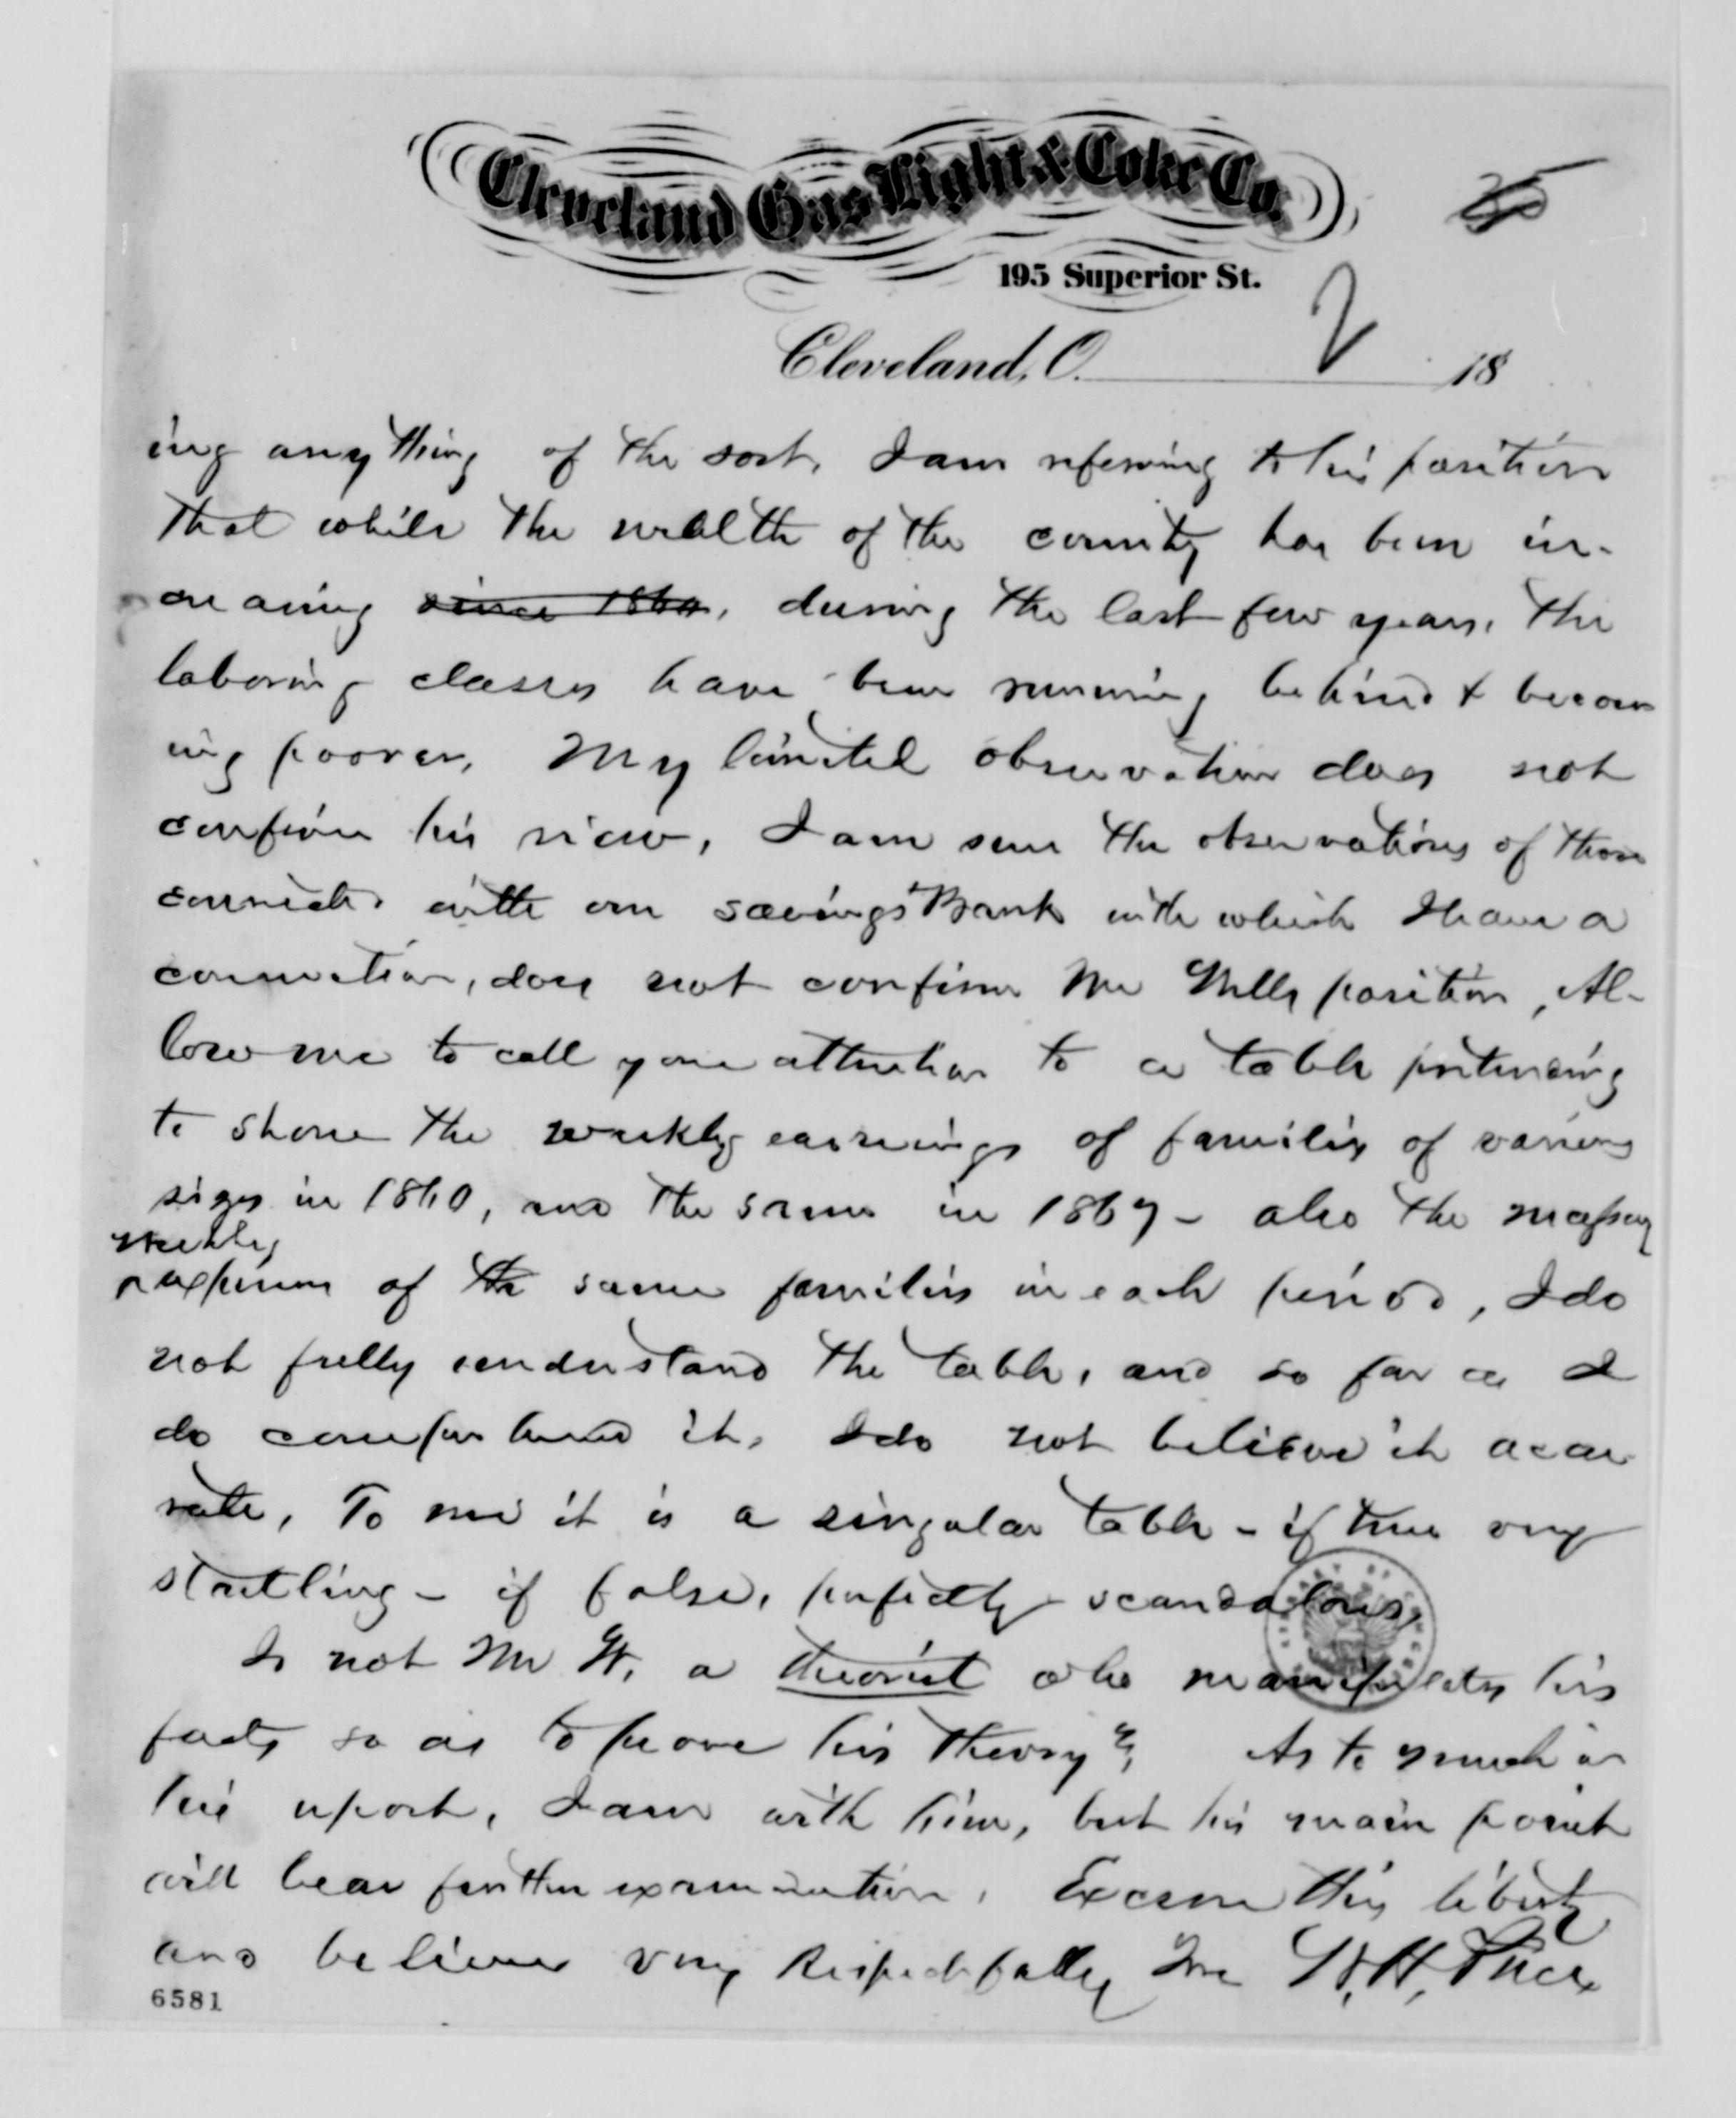 Cleveland Gas Light & Coke Co.
195 Superior St.
2
Cleveland, O. 18
ing anything of the sort. I am refering to his position
that while the wealth of the country has been in-
creasing since 1860, during the last few years, the
laboring classes have been running behind & becom
ing poorer. My limited observation does not
confirm his view, I am sure the observations of those
connected with our savings Bank with which I have a
connection, does not confirm Mr Wells position, Al-
low me to call your attention to a table pretending
to show the weekly earnings of families of various
sizes in 1860, and the same in 1867 - also the necessary
weekly
expenses of the same families in each period, I do
not fully understand the table, and so far as I
do comprehend it, I do not believe it accu
rate, To me it is a singular table - if true very
startling - if false, perfectly scandalous,
Is not Mr W. a theorist who manipulates his
facts so as to prove his theory? As to much in
his report, I am with him, but his main point
will bear further examination. Excuse this liberty
and believe very Respectfully Yrs W. H. Price
6581